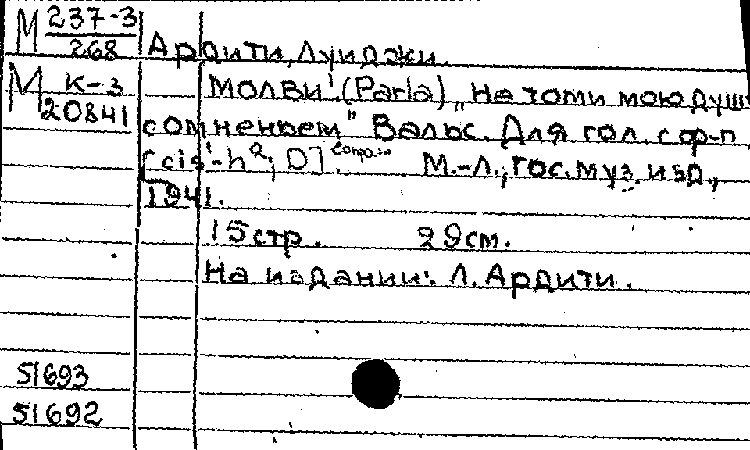 М 237-3
268
Ардити, Луиджи.
М К-3
20841
Молви! (Parla) „Не томи мою душу
сомненьем" Вальс. Для гол. с ф-п
[cis¹-h²; D]. М.-Л., Гос. муз. изд.,
1941.
15 стр. 29 см.
На издании: Л. Ардити.
51693
51692